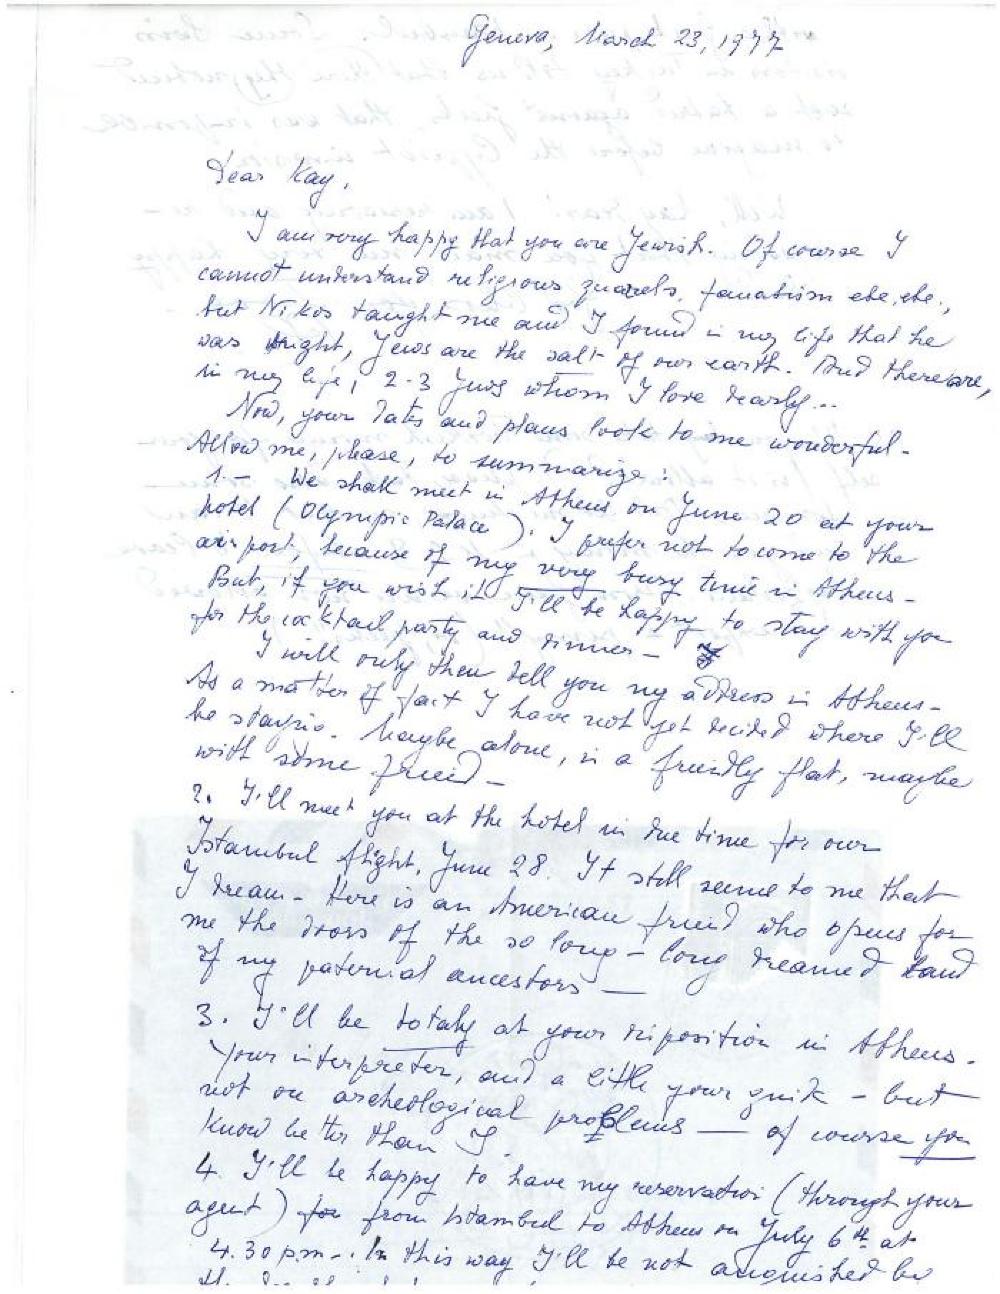 Geneva, March 23, 1977
Dear Kay,
I am very happy that you are Jewish. Of course I
cannot understand religious quarels, fanatism etc, etc.,
but Nikos taught me and I found in my life that he
was right, Jews are the salt of our earth. And there are,
in my life, 2-3 Jews whom I love dearly...
Now, your dates and plans look to me wonderful -
Allow me, please, to summarize:
1. - We shall meet in Athens on June 20 at your
hotel (Olympic Palace). I prefer not to come to the
airport, because of my very busy time in Athens -
But, if you wish it I'll be happy to stay with you
for the cocktail party and dinner -
I will only then tell you my address in Athens -
As a matter of fact I have not yet decided where I'll
be staying. Maybe alone, in a friendly flat, maybe
with some friend -
2. I'll meet you at the hotel in due time for our
Istambul flight, June 28. It still seems to me that
I dream - Here is an American friend who opens for
me the doors of the so long - long dreamed land
of my paternal ancestors —
3. I'll be totaly at your disposition in Athens -
Your interpreter, and a little your guide - but
not on archeological problems — of course you
know better than I
4. I'll be happy to have my reservation (through your
agent) from Istambul to Athens on July 6th at
4.30 p.m - . In this way I'll be not by